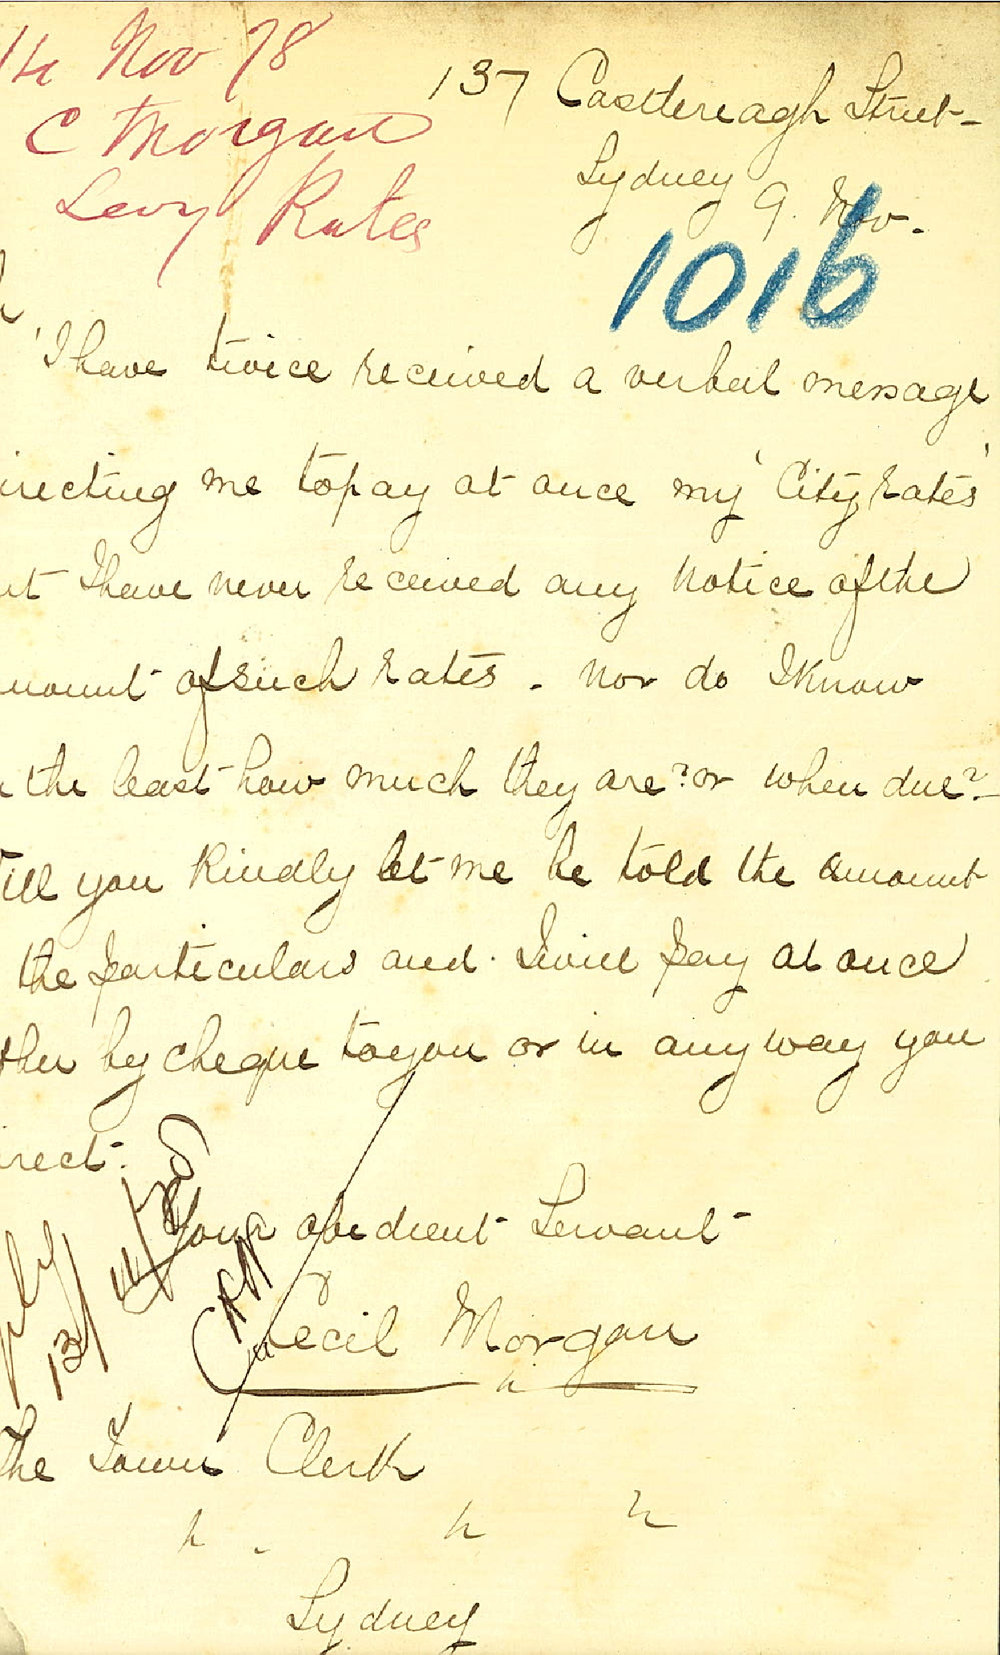 14 Nov 78
C Morgan
Levy Rates
137 Castlereagh Street-
Sydney
9. Nov.
1016
'I have twice received a verbal message
irecting me to pay at once my 'City rates'
ut I have never received any notice of the
mount of such rates. nor do I know
the least how much they are? or when due?-
ill you kindly let me be told the amount
the particulars and. I will pay at once
ther by cheque to you or in any way you
irect.
Your obedient Servant
Cecil Morgan
13/11/78
The Town Clerk
Sydney